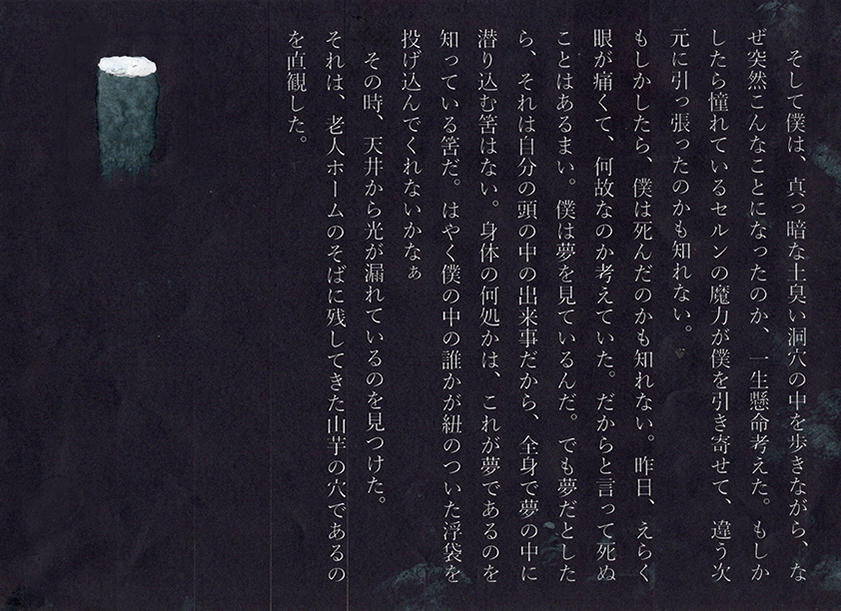 そして僕は、真っ暗な土臭い洞穴の中を歩きながら、な
ぜ突然こんなことになったのか、一生懸命考えた。もしか
したら憧れているセルンの魔力が僕を引き寄せて、違う次
元に引っ張ったのかも知れない。
もしかしたら、僕は死んだのかも知れない。昨日、えらく
眼が痛くて、何故なのか考えていた。だからと言って死ぬ
ことはあるまい。僕は夢を見ているんだ。でも夢だとした
ら、それは自分の頭の中の出来事だから、全身で夢の中に
潜り込む筈はない。身体の何処かは、これが夢であるのを
知っている筈だ。はやく僕の中の誰かが紐のついた浮袋を
投げ込んでくれないかなぁ
その時、天井から光が漏れているのを見つけた。
それは、老人ホームのそばに残してきた山芋の穴であるの
を直観した。